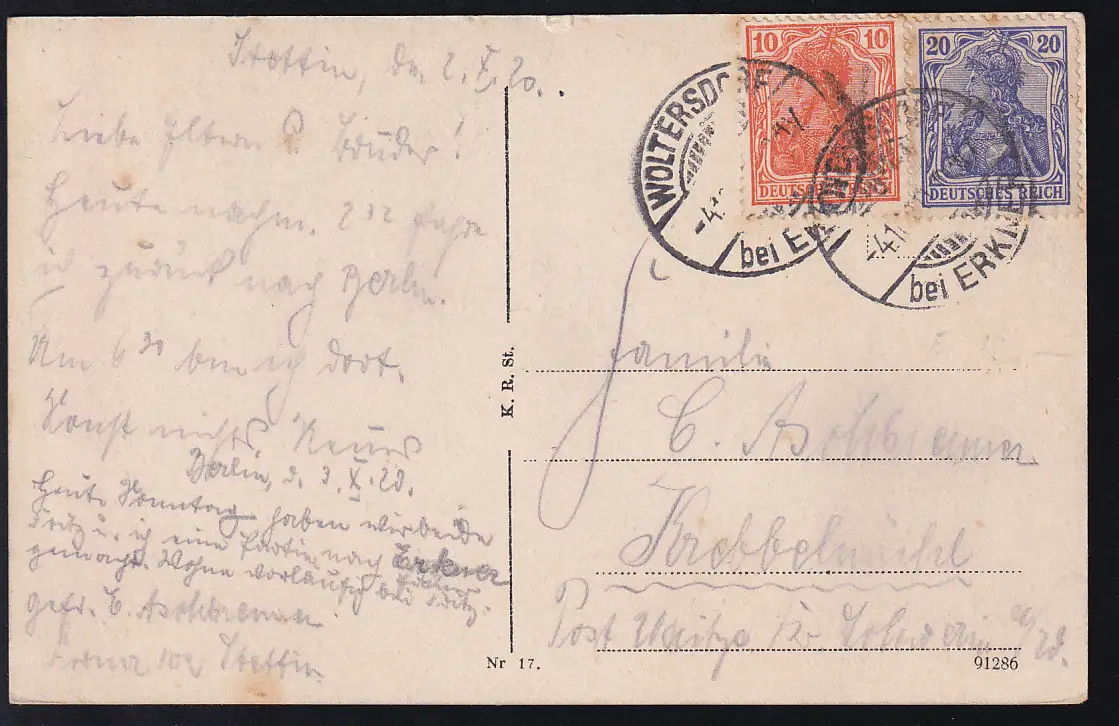 Stettin, d. 2.X.20.
Liebe Eltern u. Bruder!
Heute nachm. 2 fahre
ich zurück nach Berlin.
Um 6 30 bin ich dort.
Sonst nichts Neues
Berlin, d. 3.X.20.
Heute Sonntag haben wir beide
Fritz u. ich eine Partie nach Erkner
gemacht. Wohne vorläufig bei Fritz.
Gefr. E. Aschbrenner
Stettin.
K. R. St.
Nr 17.
10 10
DEUTSCHES
20 20
DEUTSCHES REICH
WOLTERSDORF
bei ERKNER
bei ERKNER
Familie
C. Aschbrenner
Krebbelmühl
Post
91286